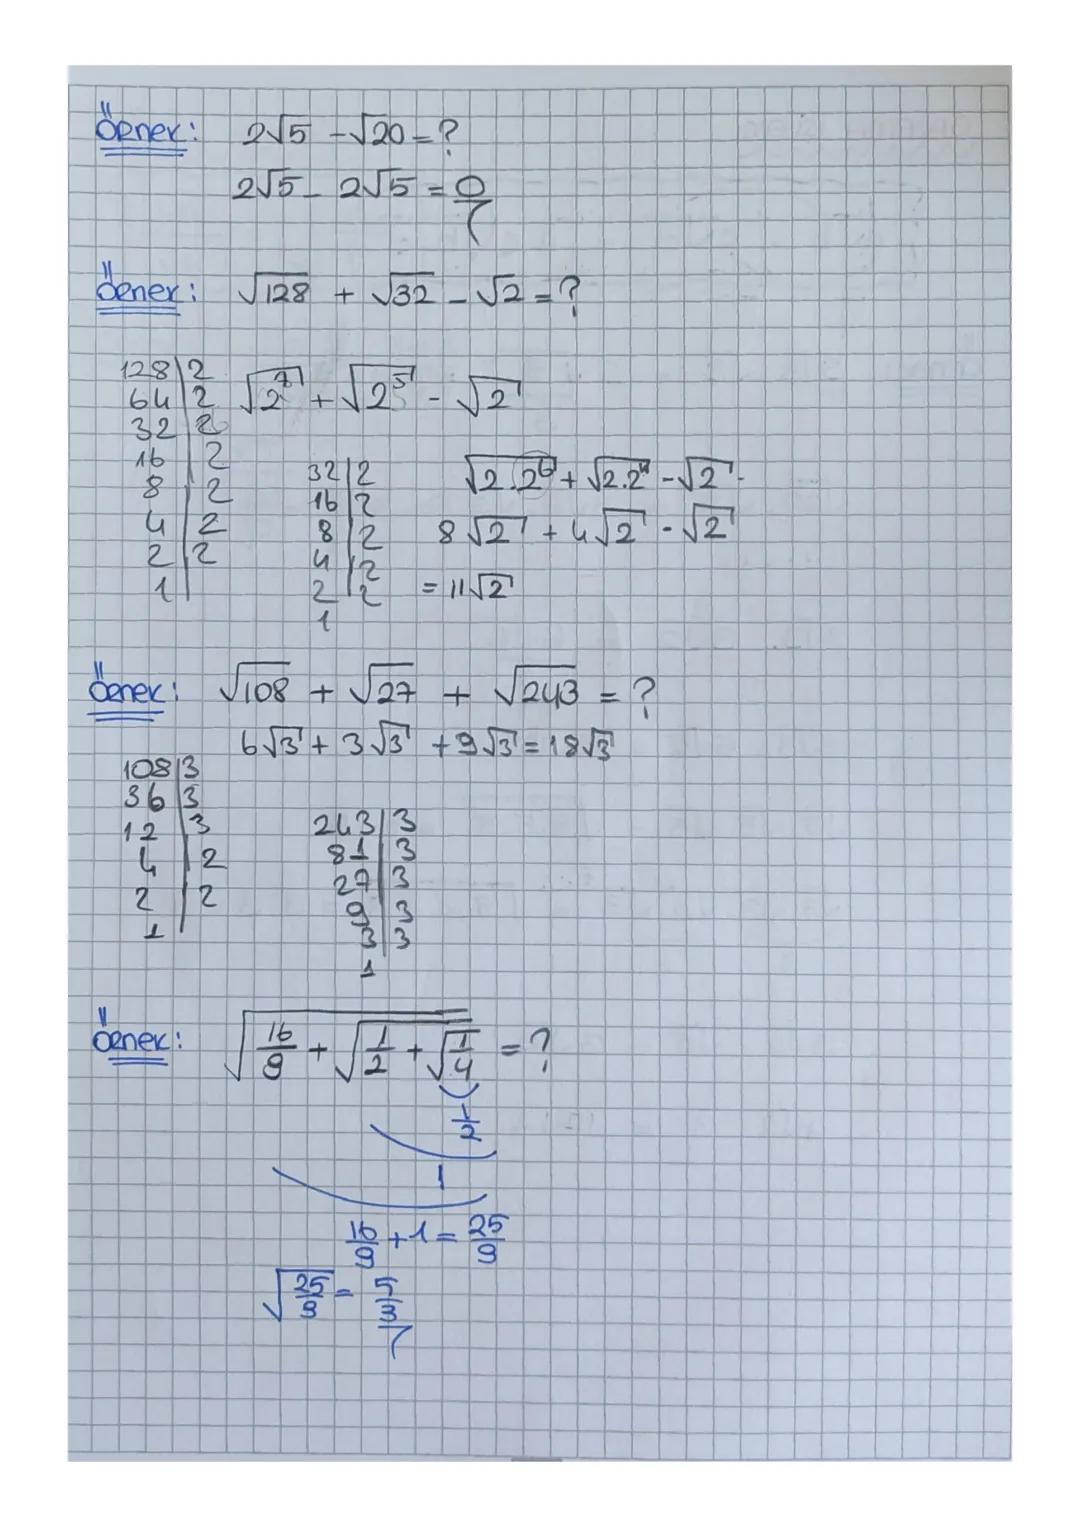 Örnek: 2√5 - √20 = ?
2√5 - 2√5 = 0
Örnek: √128 + √32 - √2 = ?
128|2
64|2
32|2
16|2
8|2
4|2
2|2
1
√2⁷ + √2⁵ - √2
32|2
16|2
8|2
4|2
2|2
1
√2.2⁶ + √2.2⁴ - √2
8√2 + 4√2 - √2
= 11√2
Örnek: √108 + √27 + √243 = ?
6√3 + 3√3 + 9√3 = 18√3
108|3
36|3
12|3
4|2
2|2
1
243|3
81|3
27|3
9|3
3|3
1
Örnek: √(16/9 + √(1/2 + √(1/4))) = ?
1/2
1
16/9 + 1 = 25/9
√(25/9) = 5/3